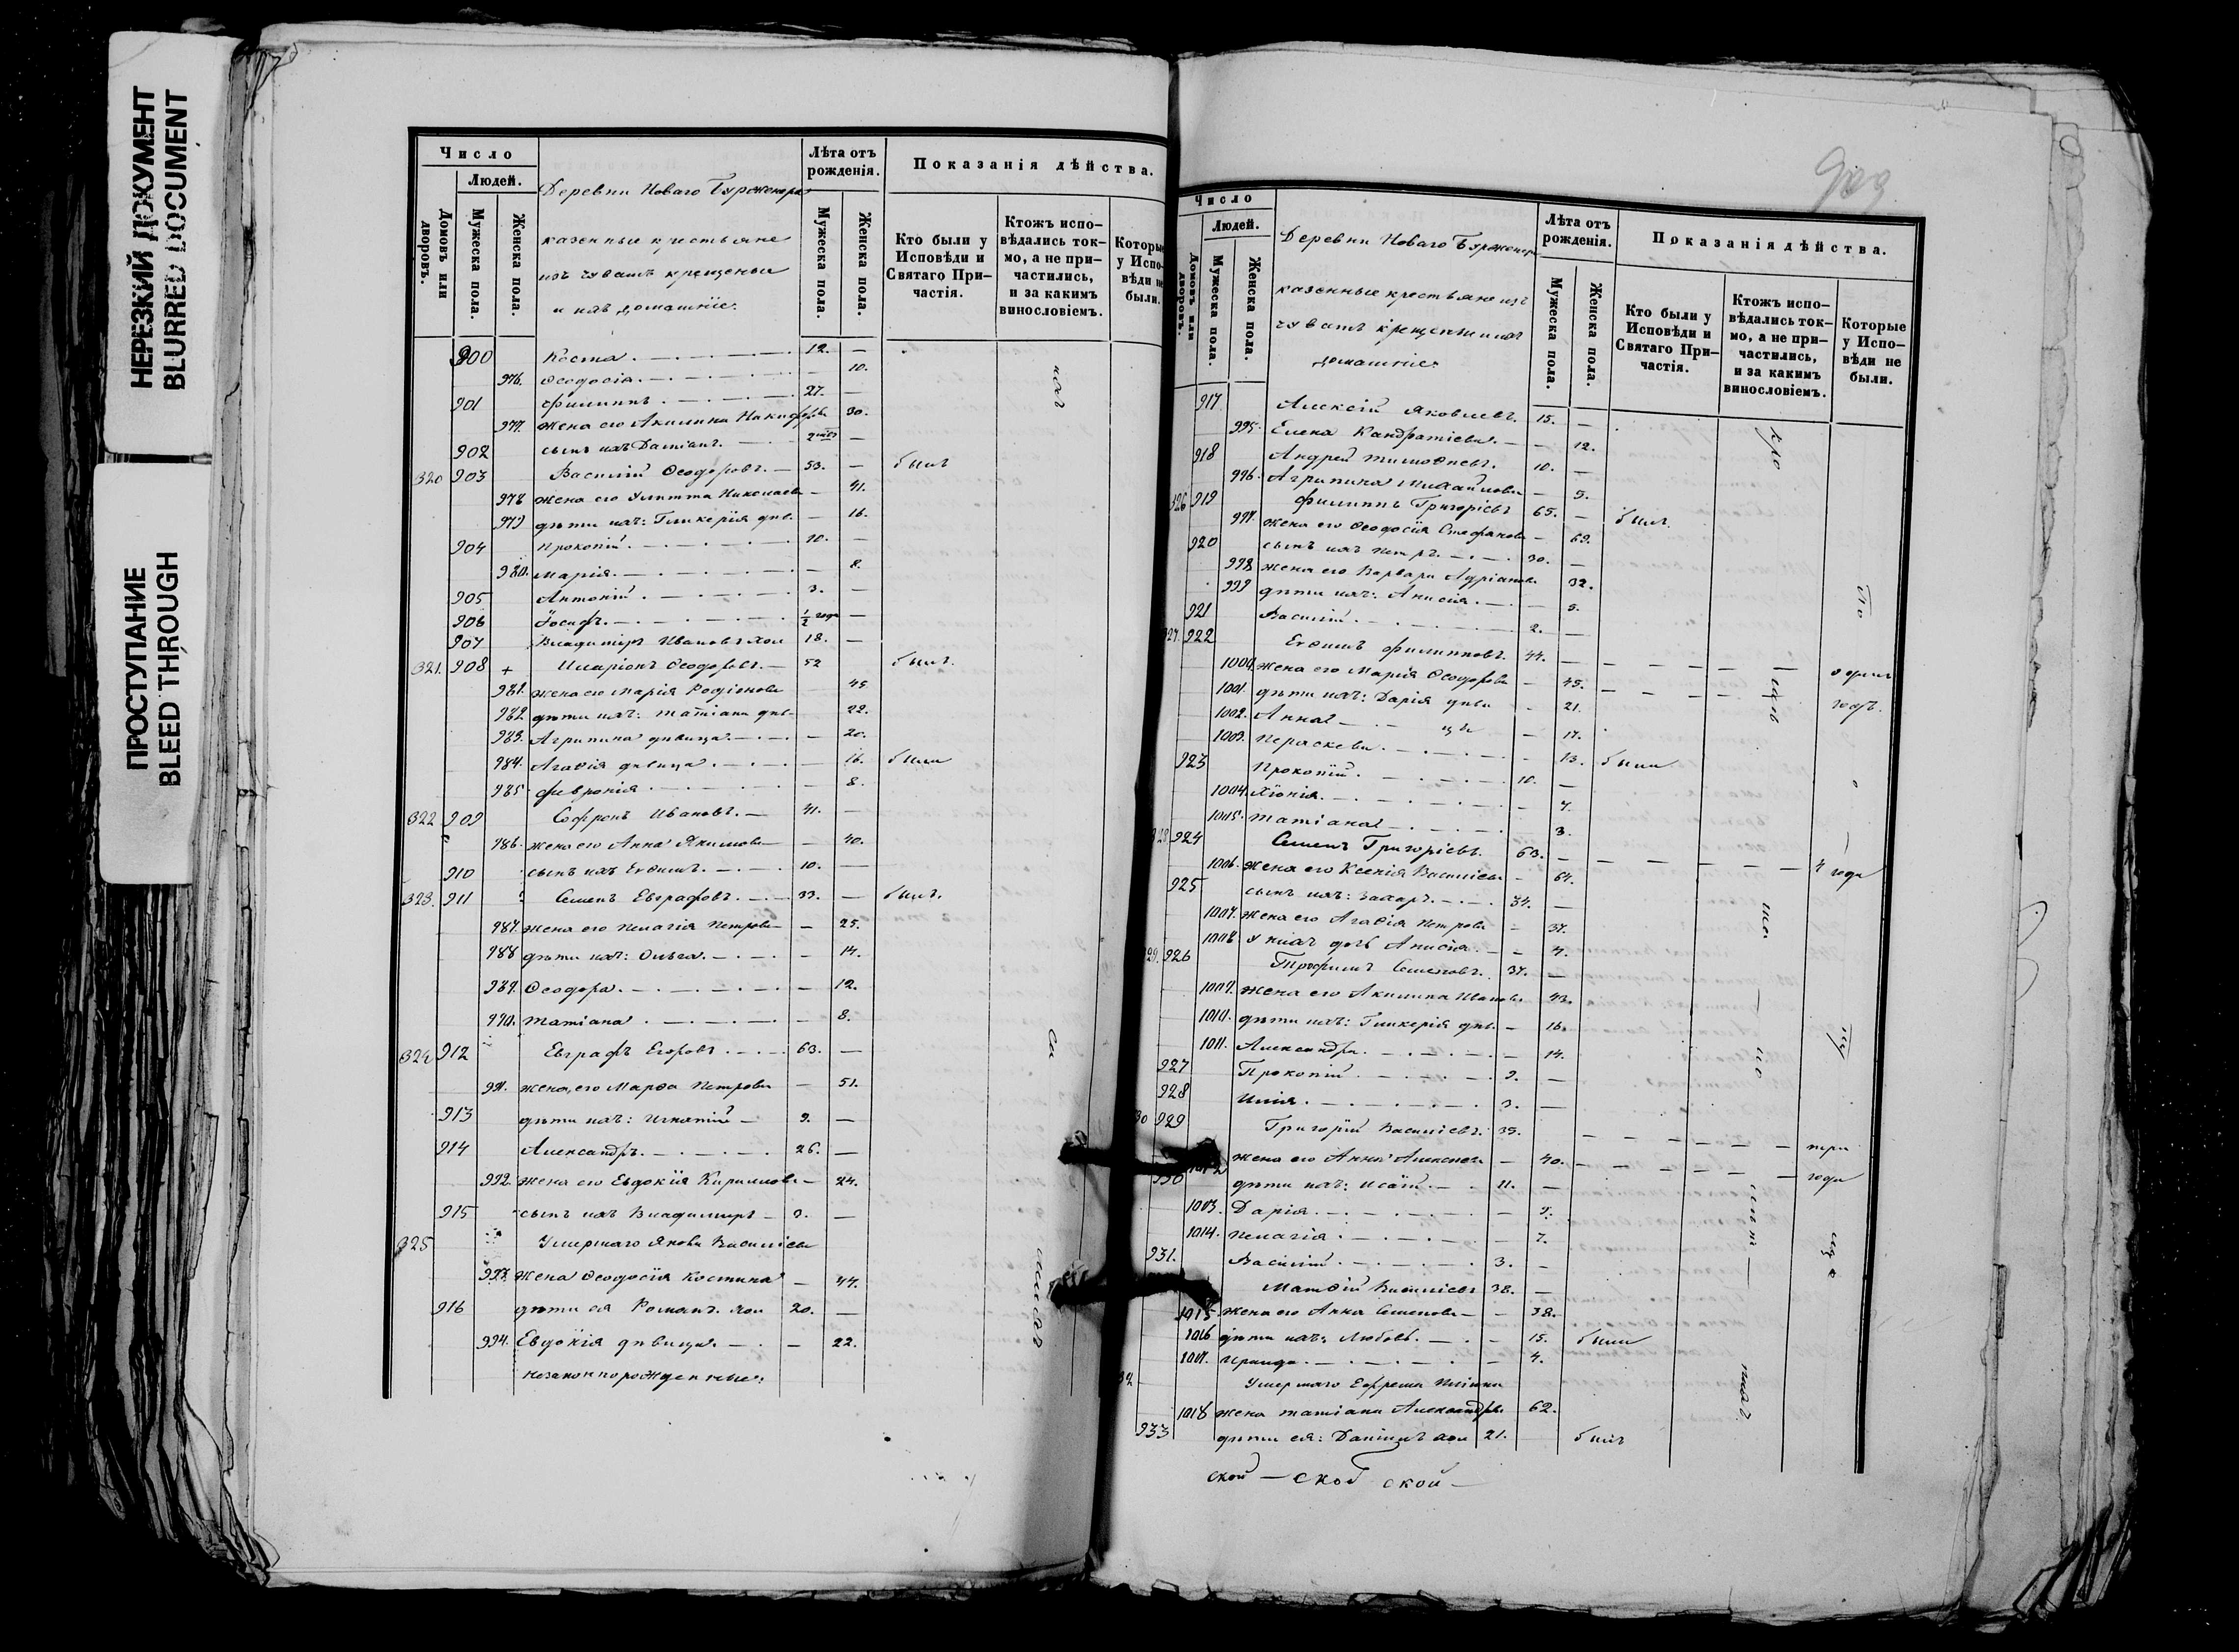 НЕРЕЗКИЙ ДОКУМЕНТ
BLURRED DOCUMENT
ПРОСТУПАНИЕ
BLEED THROUGH
Число
Людей.
Домовъ или дворовъ.
Мужеска пола.
Женска пола.
Деревни Новаго
казенные крестьяне
изъ чувашъ крещеные
и ихъ домашніе:
Лѣта отъ рожденія.
Мужеска пола.
Женска пола.
Показанія дѣйства.
Кто были у Исповѣди и Святаго При-частія.
Ктожъ испо-вѣдались ток-мо, а не при-частились, и за какимъ винословіемъ.
Которые у Испо-вѣди не были.
900 Коста 12. —
976. Ѳеодосія — 10.
901 Филиппъ 27. —
977. жена его Акилина 30.
902 сынъ ихъ Даміанъ —
320 903 Василій Ѳеодоровъ 53. — былъ
978 жена его Улитта Николаева — 41.
979 дѣти ихъ: Гликерія дѣв. — 16.
904 Прокопій 10. —
980. Марія — 8.
905 Антоній 3. —
906 Іосифъ ½ года —
907 Владиміръ Ивановъ хол 18. —
321. 908 + Иларіонъ Ѳеодоровъ 52 былъ.
981. жена его Марія Родіонова 45.
982 дѣти ихъ: Татіана дѣв. 22.
983. Агрипина дѣвица — 20.
984. Агаѳія дѣвица — 16. были
985. Февронія — 8.
322 909 Софронъ Ивановъ. 41. —
986. жена его Анна Якимова — 40.
910 сынъ ихъ Евѳимъ 10. —
323. 911 Семенъ Евграфовъ 33. — былъ.
987. жена его Пелагія Петрова — 25.
988 дѣти ихъ: Ольга — 14.
989. Ѳеодора — 12.
990. Татіана — 8.
324 912 Евграфъ Егоровъ 63. —
991. жена его Марѳа Петрова — 51.
913 дѣти ихъ: Игнатій 9. —
914 Александръ 26. —
992. жена его Евдокія Кириллова — 24.
915 сынъ ихъ Владиміръ 3. —
325 Умершаго Якова Васильева
993. жена Ѳеодосія Костина — 44.
916 дѣти ея Романъ хол 20. —
994. Евдокія дѣвица — 22.
незаконнорожденные:
909
Число
Людей.
Домовъ или дворовъ.
Мужеска пола.
Женска пола.
Деревни Новаго
казенные крестьяне изъ
чувашъ крещеные и ихъ
домашніе:
Лѣта отъ рожденія.
Мужеска пола.
Женска пола.
Показанія дѣйства.
Кто были у Исповѣди и Святаго При-частія.
Ктожъ испо-вѣдались ток-мо, а не при-частились, и за какимъ винословіемъ.
Которые у Испо-вѣди не были.
917 Алексій Яковлевъ. 15. —
995. Елена Кандратіева — 12.
918 Андрей Тимоѳеевъ. 10. —
996. Агрипина Михайлова — 5.
326 919 Филиппъ Григорьевъ 65. — былъ.
997. жена его Ѳеодосія Стефанова — 69.
920 сынъ ихъ Петръ 30. —
998 жена его Варвара Адріанова 32.
999 дѣти ихъ: Анисія — 5.
921 Василій 2. —
327. 922 Евѳимъ Филипповъ. 44. — одинъ
1000. жена его Марія Ѳеодорова — 45. — годъ.
1001. дѣти ихъ: Дарія дѣви — 21.
1002. Анна — ца — 17.
1003. Параскева — 13. были
923 Прокопій 10. —
1004. Хіонія — 7.
1005. Татіана 3.
328 924 Семенъ Григорьевъ. 63. — 4 года
1006. жена его Ксенія Васильева — 64.
925 сынъ ихъ: Захаръ 34. —
1007. жена его Агаѳія Петрова — 37.
1008. У нихъ дочь Анисія — 4.
329. 926 Трофимъ Семеновъ. 37. —
1009. жена его Акилина Иванова 43.
1010. дѣти ихъ: Гликерія дѣв. — 16.
1011. Александра — 14.
927 Прокопій 9. —
928 Илія 3. —
330 929 Григорій Васильевъ: 35. — три
1012 жена его Анна Алексеева — 40. — года
930 дѣти ихъ: Исаій 11. —
1013. Дарія — 9.
1014. Пелагія — 7.
931. Василій 3. —
Матѳій Васильевъ 38. —
1015. жена его Анна Семенова — 38.
1016 дѣти ихъ: Любовь — 15. были
1017. Ираида — 4.
Умершаго Ефрема
1018 жена Татіана Александрова 62.
933 дѣти ея: Даніилъ хол 21. былъ
ской — ской ской —